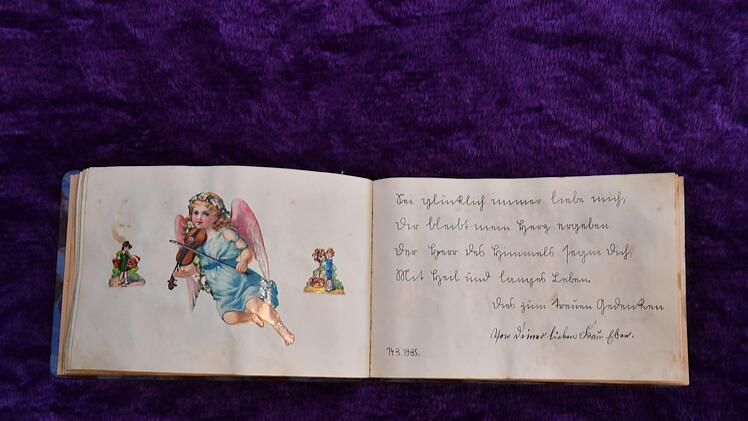 Sei glücklich immer liebe mich,
Dir bleibt mein Herz ergeben
Der Herr des Himmels segne Dich,
Mit Heil und langes Leben.
Dies zum treuen Gedenken
Von Deiner lieben Frau
14.3.1935.